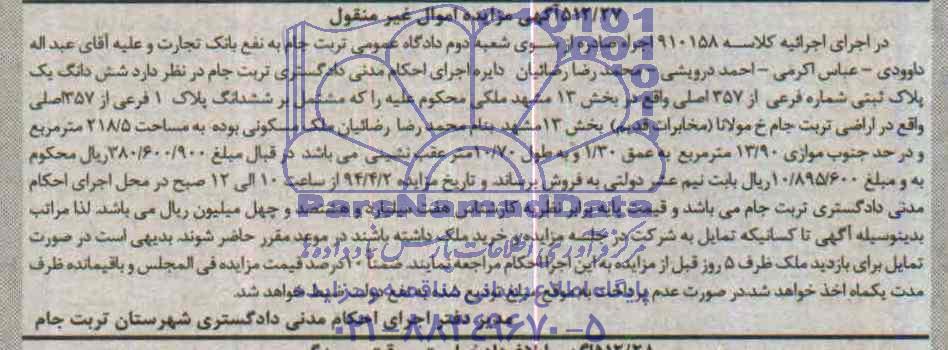 ۵۱۲/۲۷آگهی مزایده اموال غیر منقول
در اجرای اجرائیه کلاسه ۹۱۰۱۵۸ اجراء صادره از سوی شعبه دوم دادگاه عمومی تربت جام به نفع بانک تجارت و علیه آقای عبد اله
داوودی - عباس اکرمی - احمد درویشی - محمد رضا رضائیان دایره اجرای احکام مدنی دادگستری تربت جام در نظر دارد شش دانگ یک
پلاک ثبتی شماره فرعی از ۳۵۷ اصلی واقع در بخش ۱۳ مشهد ملکی محکوم علیه را که مشتمل بر ششدانگ پلاک ۱ فرعی از ۳۵۷اصلی
واقع در اراضی تربت جام خ مولانا (مخابرات قدیم) بخش ۱۳ مشهد بنام محمد رضا رضائیان ملک مسکونی بوده به مساحت ۲۱۸/۵ مترمربع
و در حد جنوب موازی ۱۳/۹۰ مترمربع به عمق ۱/۳۰ و به طول ۱۰/۷۰متر عقب نشینی می باشد در قبال مبلغ ۳۸۰/۶۰۰/۹۰۰ریال محکوم
به و مبلغ ۱۰/۸۹۵/۶۰۰ریال بابت نیم عشر دولتی به فروش برساند و تاریخ مزایده ۹۴/۴/۲ از ساعت ۱۰ الی ۱۲ صبح در محل اجرای احکام
مدنی دادگستری تربت جام می باشد و قیمت پایه برابر نظریه کارشناس هفت میلیارد و هشتصد و چهل میلیون ریال می باشد. لذا مراتب
بدینوسیله آگهی تا کسانیکه تمایل به شرکت در جلسه مزایده و خرید ملک داشته باشند در موعد مقرر حاضر شوند. بدیهی است در صورت
تمایل برای بازدید ملک ظرف ۵ روز قبل از مزایده به این اجرا احکام مراجعه نمایند. ضمنا ۱۰درصد قیمت مزایده فی المجلس و باقیمانده ظرف
مدت یکماه اخذ خواهد شد.در صورت عدم پرداخت به موقع مبلغ تودیع شده به نفع دولت ضبط خواهد شد.
مدیر دفتر اجرای احکام مدنی دادگستری شهرستان تربت جام
ParsNamadData
مرکز فرآوری اطلاعات پارس نماد داده ها
پایگاه اطلاع رسانی مناقصه و مزایده
۰۲۱-۸۸۳۴۹۶۷۰-۵